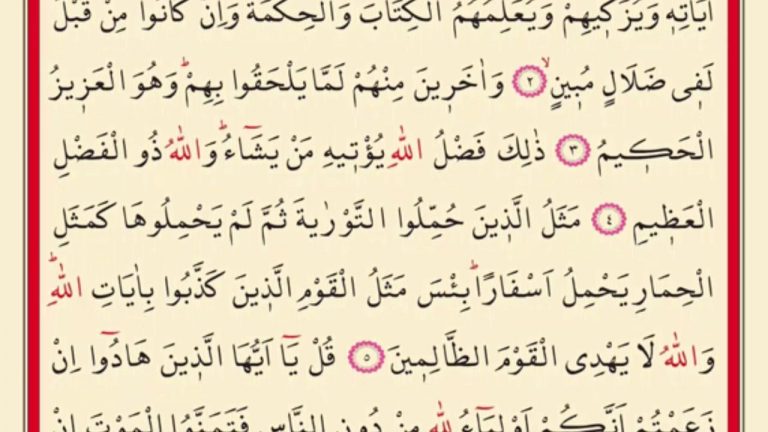 اٰيَاتِهٖ وَيُزَكّٖيهِمْ وَيُعَلِّمُهُمُ الْكِتَابَ وَالْحِكْمَةَ وَاِنْ كَانُوا مِنْ قَبْلُ
لَفٖى ضَلَالٍ مُبٖينٍۙ ﴿٢﴾ وَاٰخَرٖينَ مِنْهُمْ لَمَّا يَلْحَقُوا بِهِمْۜ وَهُوَ الْعَزٖيزُ
الْحَكٖيمُ ﴿٣﴾ ذٰلِكَ فَضْلُ اللّٰهِ يُؤْتٖيهِ مَنْ يَشَٓاءُۜ وَاللّٰهُ ذُو الْفَضْلِ
الْعَظٖيمِ ﴿٤﴾ مَثَلُ الَّذٖينَ حُمِّلُوا التَّوْرٰيةَ ثُمَّ لَمْ يَحْمِلُوهَا كَمَثَلِ
الْحِمَارِ يَحْمِلُ اَسْفَارًاۜ بِئْسَ مَثَلُ الْقَوْمِ الَّذٖينَ كَذَّبُوا بِاٰيَاتِ اللّٰهِۜ
وَاللّٰهُ لَا يَهْدِى الْقَوْمَ الظَّالِمٖينَ ﴿٥﴾ قُلْ يَٓا اَيُّهَا الَّذٖينَ هَادُٓوا اِنْ
زَعَمْتُمْ اَنَّكُمْ اَوْلِيَٓاءُ لِلّٰهِ مِنْ دُونِ النَّاسِ فَتَمَنَّوُا الْمَوْتَ اِنْ